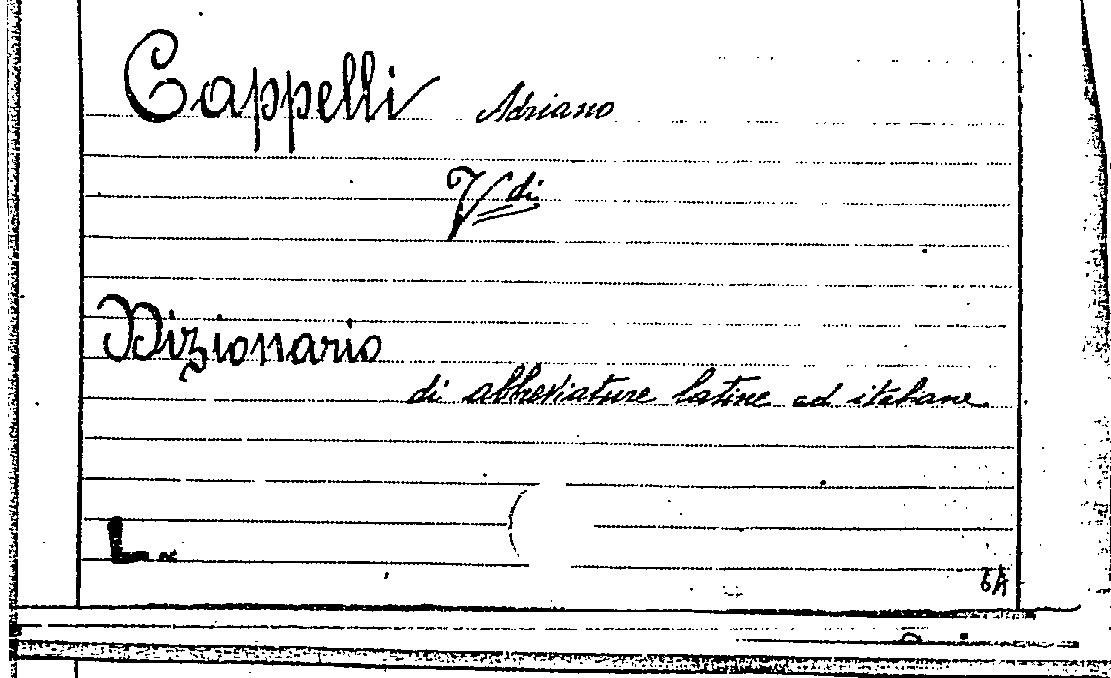 Cappelli Adriano
Vdi
Dizionario
di abbreviature latine ed italiane.